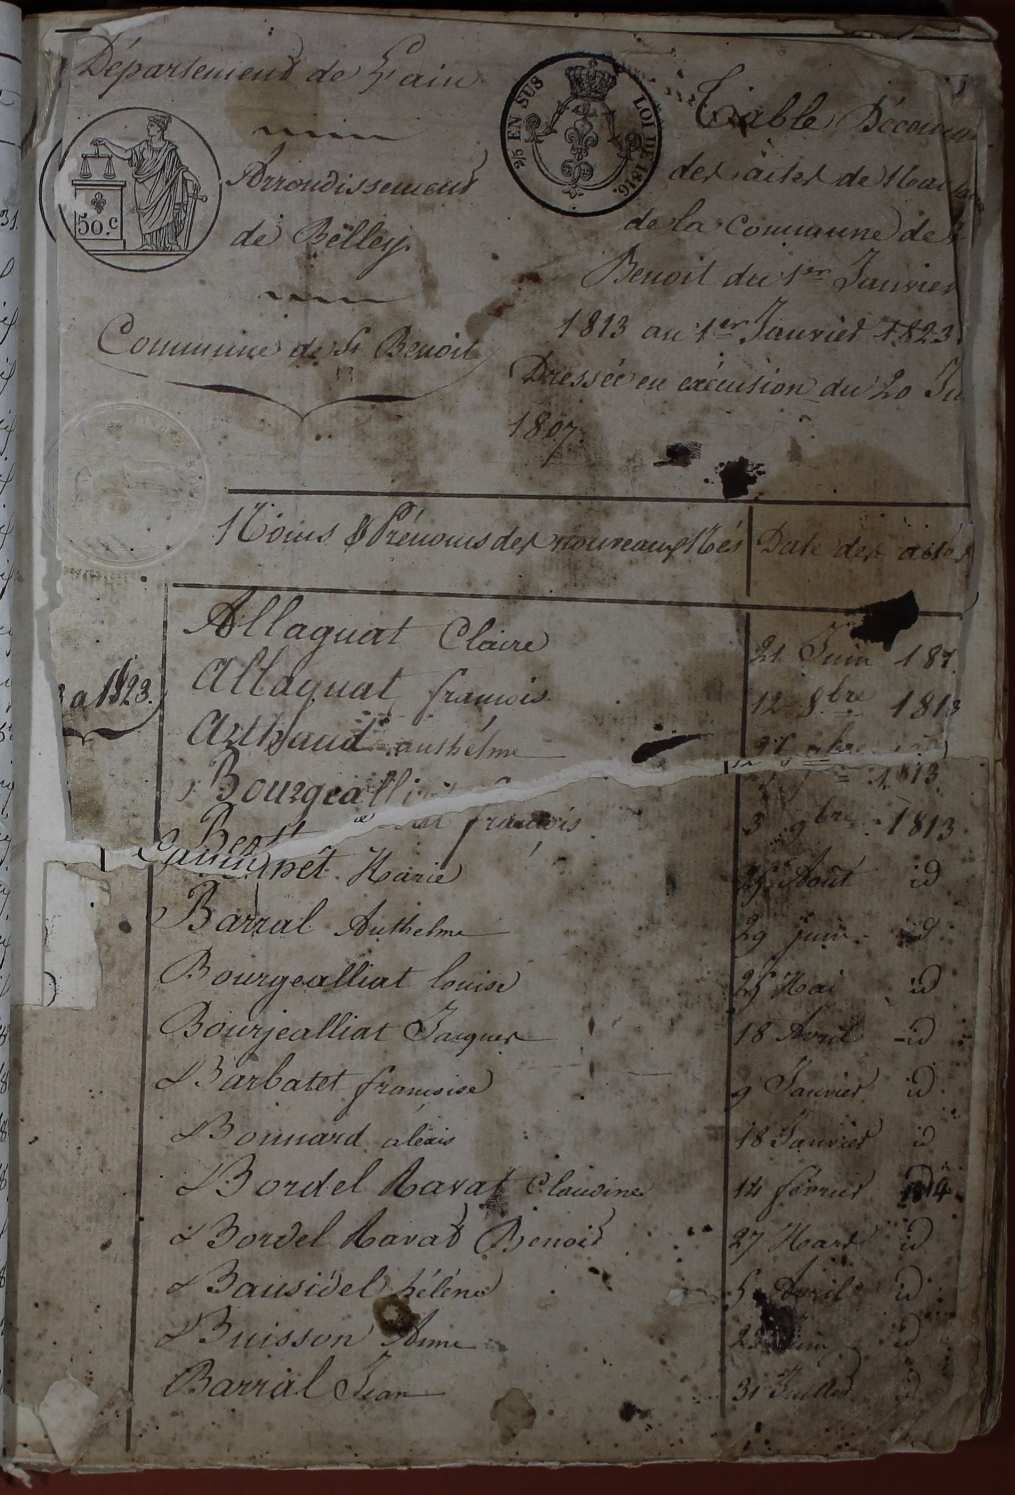 Département de l'ain
Arrondissement
de Bëlley.
Commune de St Benoit
50.c
2/5 EN SUS LOI DE 1816.
Table Décennn
des actes de Nai
de la Commune de
Benoit du 1er Janvier
1813 au 1er Janvier 1823.
Dressée en exécution du 20 Ju
1807.
Noms & Prénoms des nouveaux Nés Date des actes
a 1823.
Allaguat Claire 21 Juin 181
Allaguat francois 12 8bre 1813
Arthaud anthélme
Bourgealli 1813
francois 3 9bre 1813
net Marie 25 Aout id
Barral Anthelme 29 juin id
Bourgealliat louise 25 Mai id
Bourjealliat Jacques 18 Avril id
Barbatet francoise 9 Janvier id
Bonnard aléxis 18 Janvier id
Bordel Ravat Claudine 14 février
Bordel Ravat Benoit 27 Mars id
Bausidel hélène 5 Avril id
Buisson Anne Juin id
Barral Jean 31 Juillet id